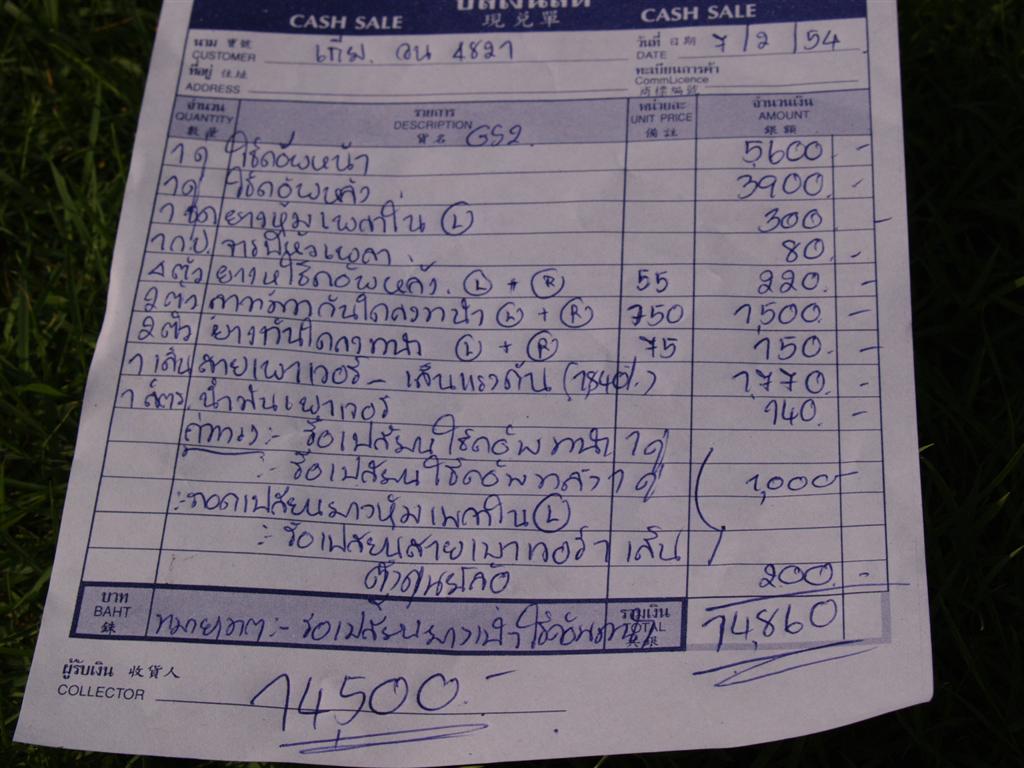 บิลเงินสด
CASH SALE 現兑單 CASH SALE
นาม 寶號 CUSTOMER วน 4821 วันที่ 日期 DATE 7/2/54
ที่อยู่ 住址 ADDRESS ทะเบียนการค้า CommLicence 商標編號
จำนวน QUANTITY 數量 รายการ DESCRIPTION 貨名 GS2 หน่วยละ UNIT PRICE 備註 จำนวนเงิน AMOUNT 銀額
1 คู่ โช๊คอัพหน้า 5600 -
1 คู่ โช๊คอัพหลัง 3900 -
1 ชุด ยางหุ้มเพลาใน (L) 300 -
1 กป. จารบีหัวเพลา 80 -
4 ตัว โช๊คอัพหลัง (L) + (R) 55 220 -
2 ตัว (L) + (R) 750 1,500 -
2 ตัว ยางกันโคลงหน้า (L) + (R) 75 150 -
1 เส้น สายเพาเวอร์ - เส้นแรงดัน (1840.-) 1,770 -
1 ลิตร น้ำมันเพาเวอร์ 140 -
ค่าแรง :- รื้อเปลี่ยนโช๊คอัพหน้า 1 คู่
:- รื้อเปลี่ยนโช๊คอัพหลัง 1 คู่ 1,000 -
:- ถอดเปลี่ยนยางหุ้มเพลาใน (L)
:- รื้อเปลี่ยนสายเพาเวอร์ 1 เส้น
200 -
บาท BAHT 銖 หมายเหตุ :- รื้อเปลี่ยนยาง รวมเงิน TOTAL 14,860
ผู้รับเงิน 收貨人
COLLECTOR 14,500 -